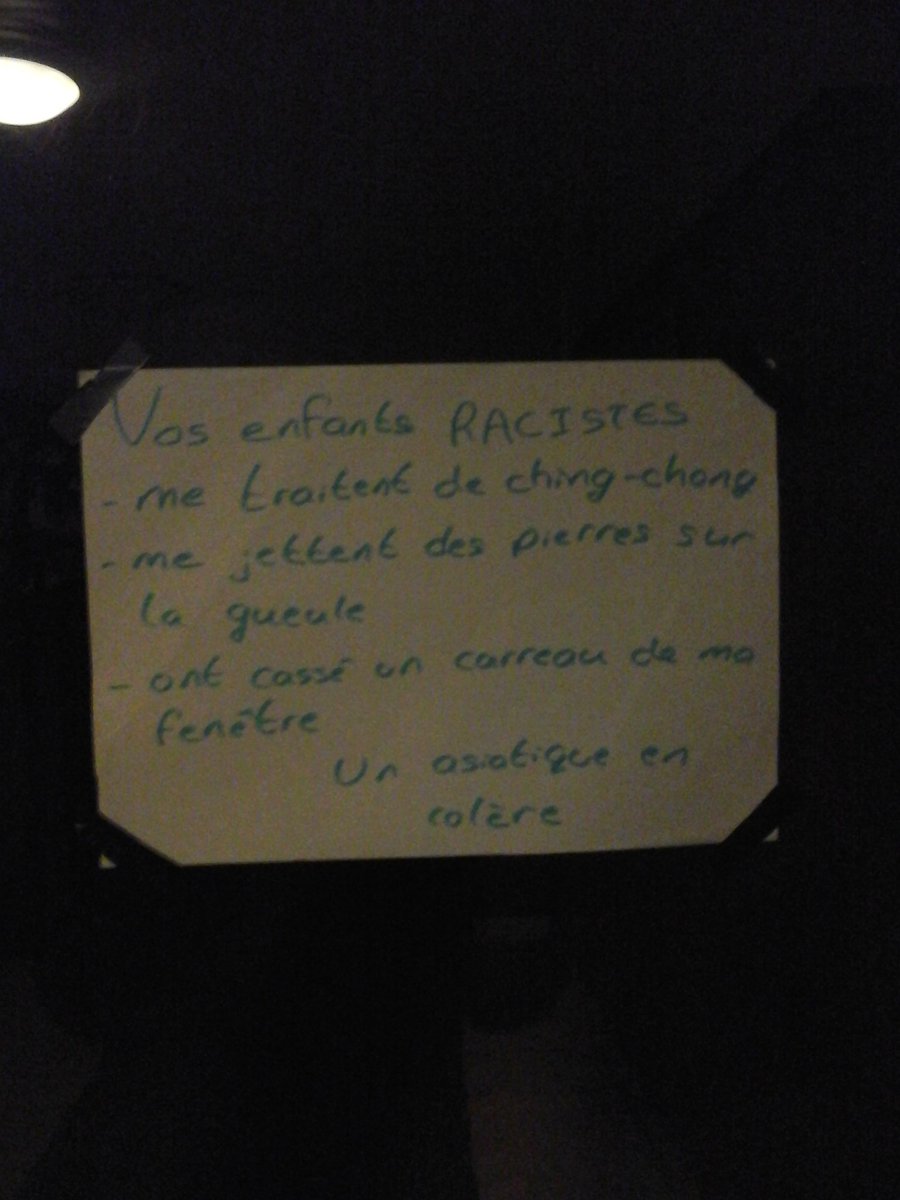 Vos enfants RACISTES
- me traitent de ching-chong
- me jettent des pierres sur
la gueule
- ont cassé un carreau de ma
fenêtre
Un asiatique en
colère